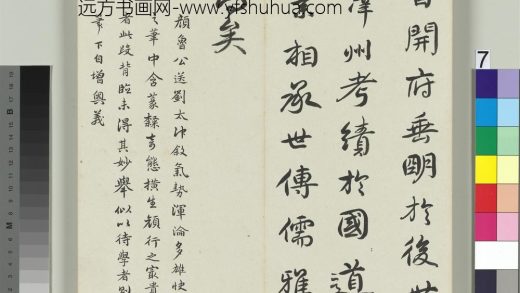 远方书画网-www.yfshuhua.com
開府垂明於後
澤州考績於國道
相承世傳儒雅
矣
顏魯公送劉太沖敘氣勢渾淪多雄快
之筆中含篆隸奇態橫生顏行之最貴
者此段背臨未得其妙舉似以待學者別
下自增興義
7
B
M